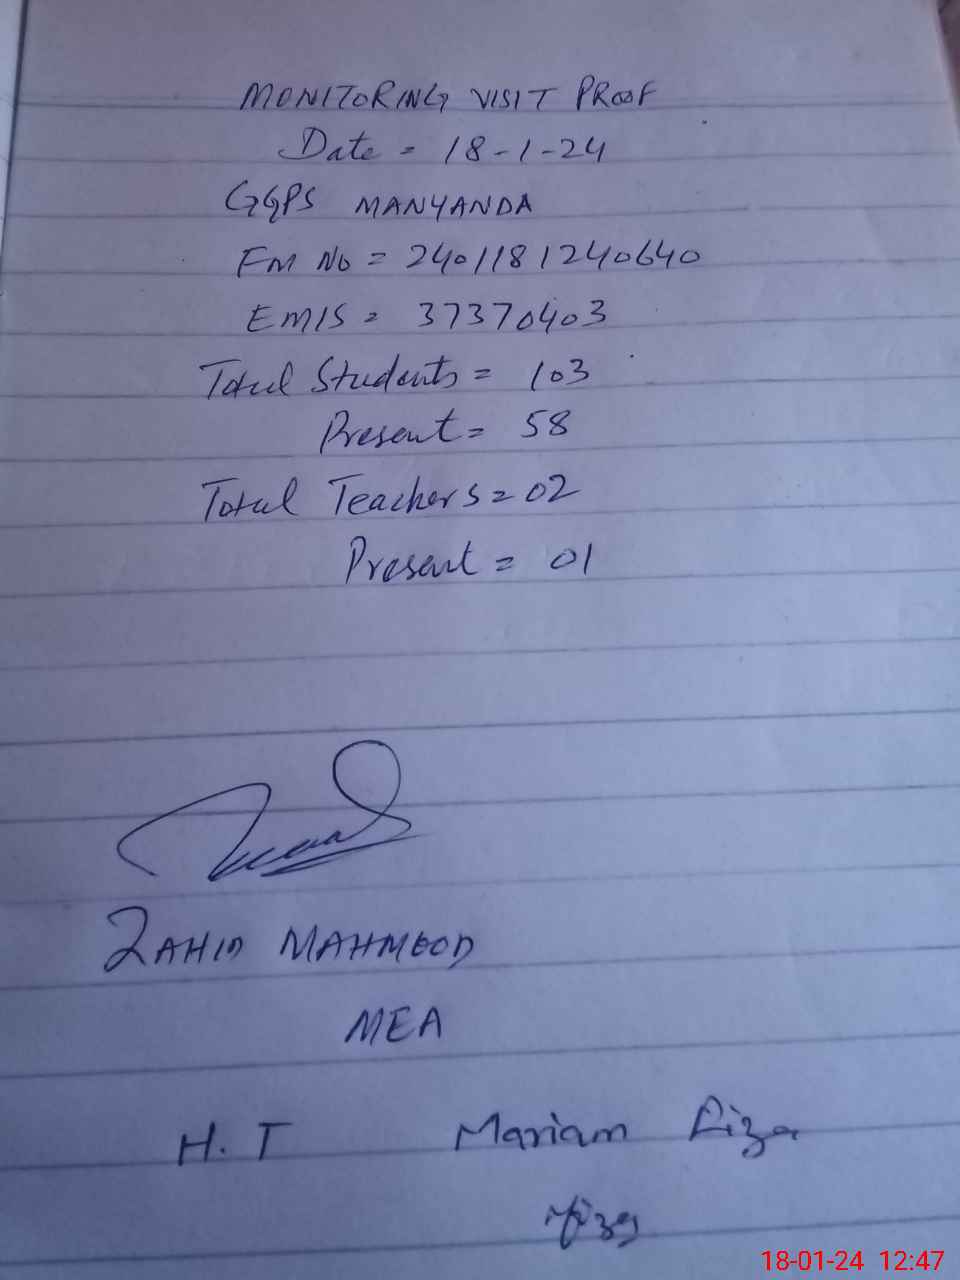 MONITORING VISIT PROOF
Date = 18-1-24
GGPS MANYANDA
FM No = 2401181240640
EMIS = 37370403
Total Students = 103
Present = 58
Total Teachers = 02
Present = 01
ZAHID MAHMOOD
MEA
H. T Mariam Aiza
18-01-24 12:47